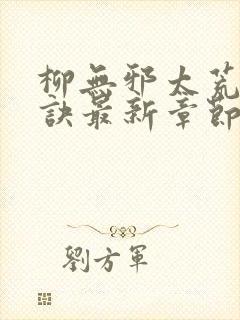 柳無邪太荒
訣最新章節
劉方軍